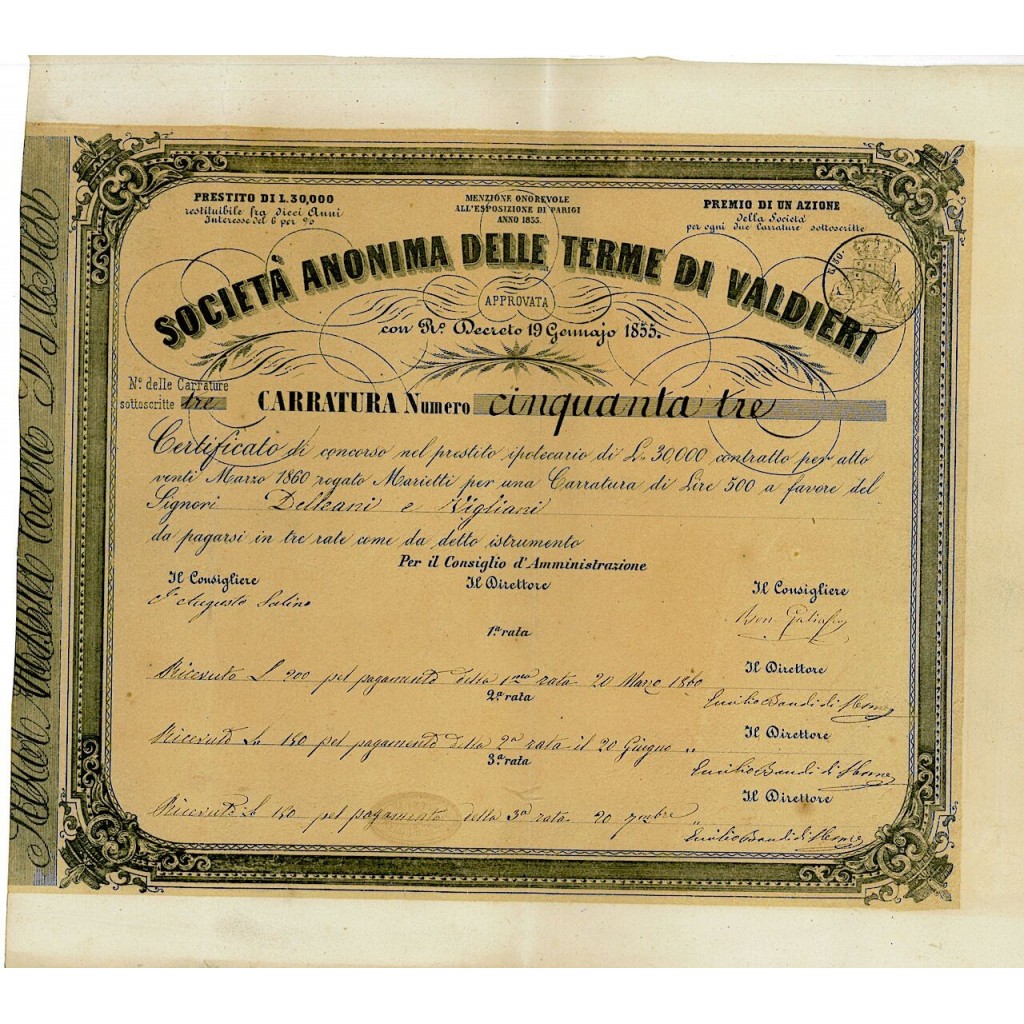 PRESTITO DI L. 30,000
restituibile fra dieci Anni
Interesse del 6 per %
MENZIONE ONOREVOLE
ALL'ESPOSIZIONE DI PARIGI
ANNO 1855.
PREMIO DI UN AZIONE
della Società
per ogni due Carrature sottoscritte
SOCIETÀ ANONIMA DELLE TERME DI VALDIERI
APPROVATA
con Rº Decreto 19 Gennajo 1855.
Nº delle Carrature
sottoscritte tre
CARRATURA Numero cinquanta tre
Certificato di concorso nel prestito ipotecario di Lº 30,000 contratto per atto
venti Marzo 1860 rogato Marietti per una Carratura di Lire 500 a favore del
Signori Delleani e Vigliani
da pagarsi in tre rate come da detto istrumento
Per il Consiglio d'Amministrazione
Il Consigliere
Il Direttore
Il Consigliere
Augusto Salino
1ª rata
Il Direttore
Ricevuto L 200 pel pagamento della 1ma rata 20 Marzo 1860
Emilio Bandi di
2ª rata
Il Direttore
Ricevuto L 150 pel pagamento della 2ª rata il 20 Giugno „
Emilio Bandi di
3ª rata
Il Direttore
Ricevuto L 150 pel pagamento della 3ª rata 20 7mbre „
Emilio Bandi di